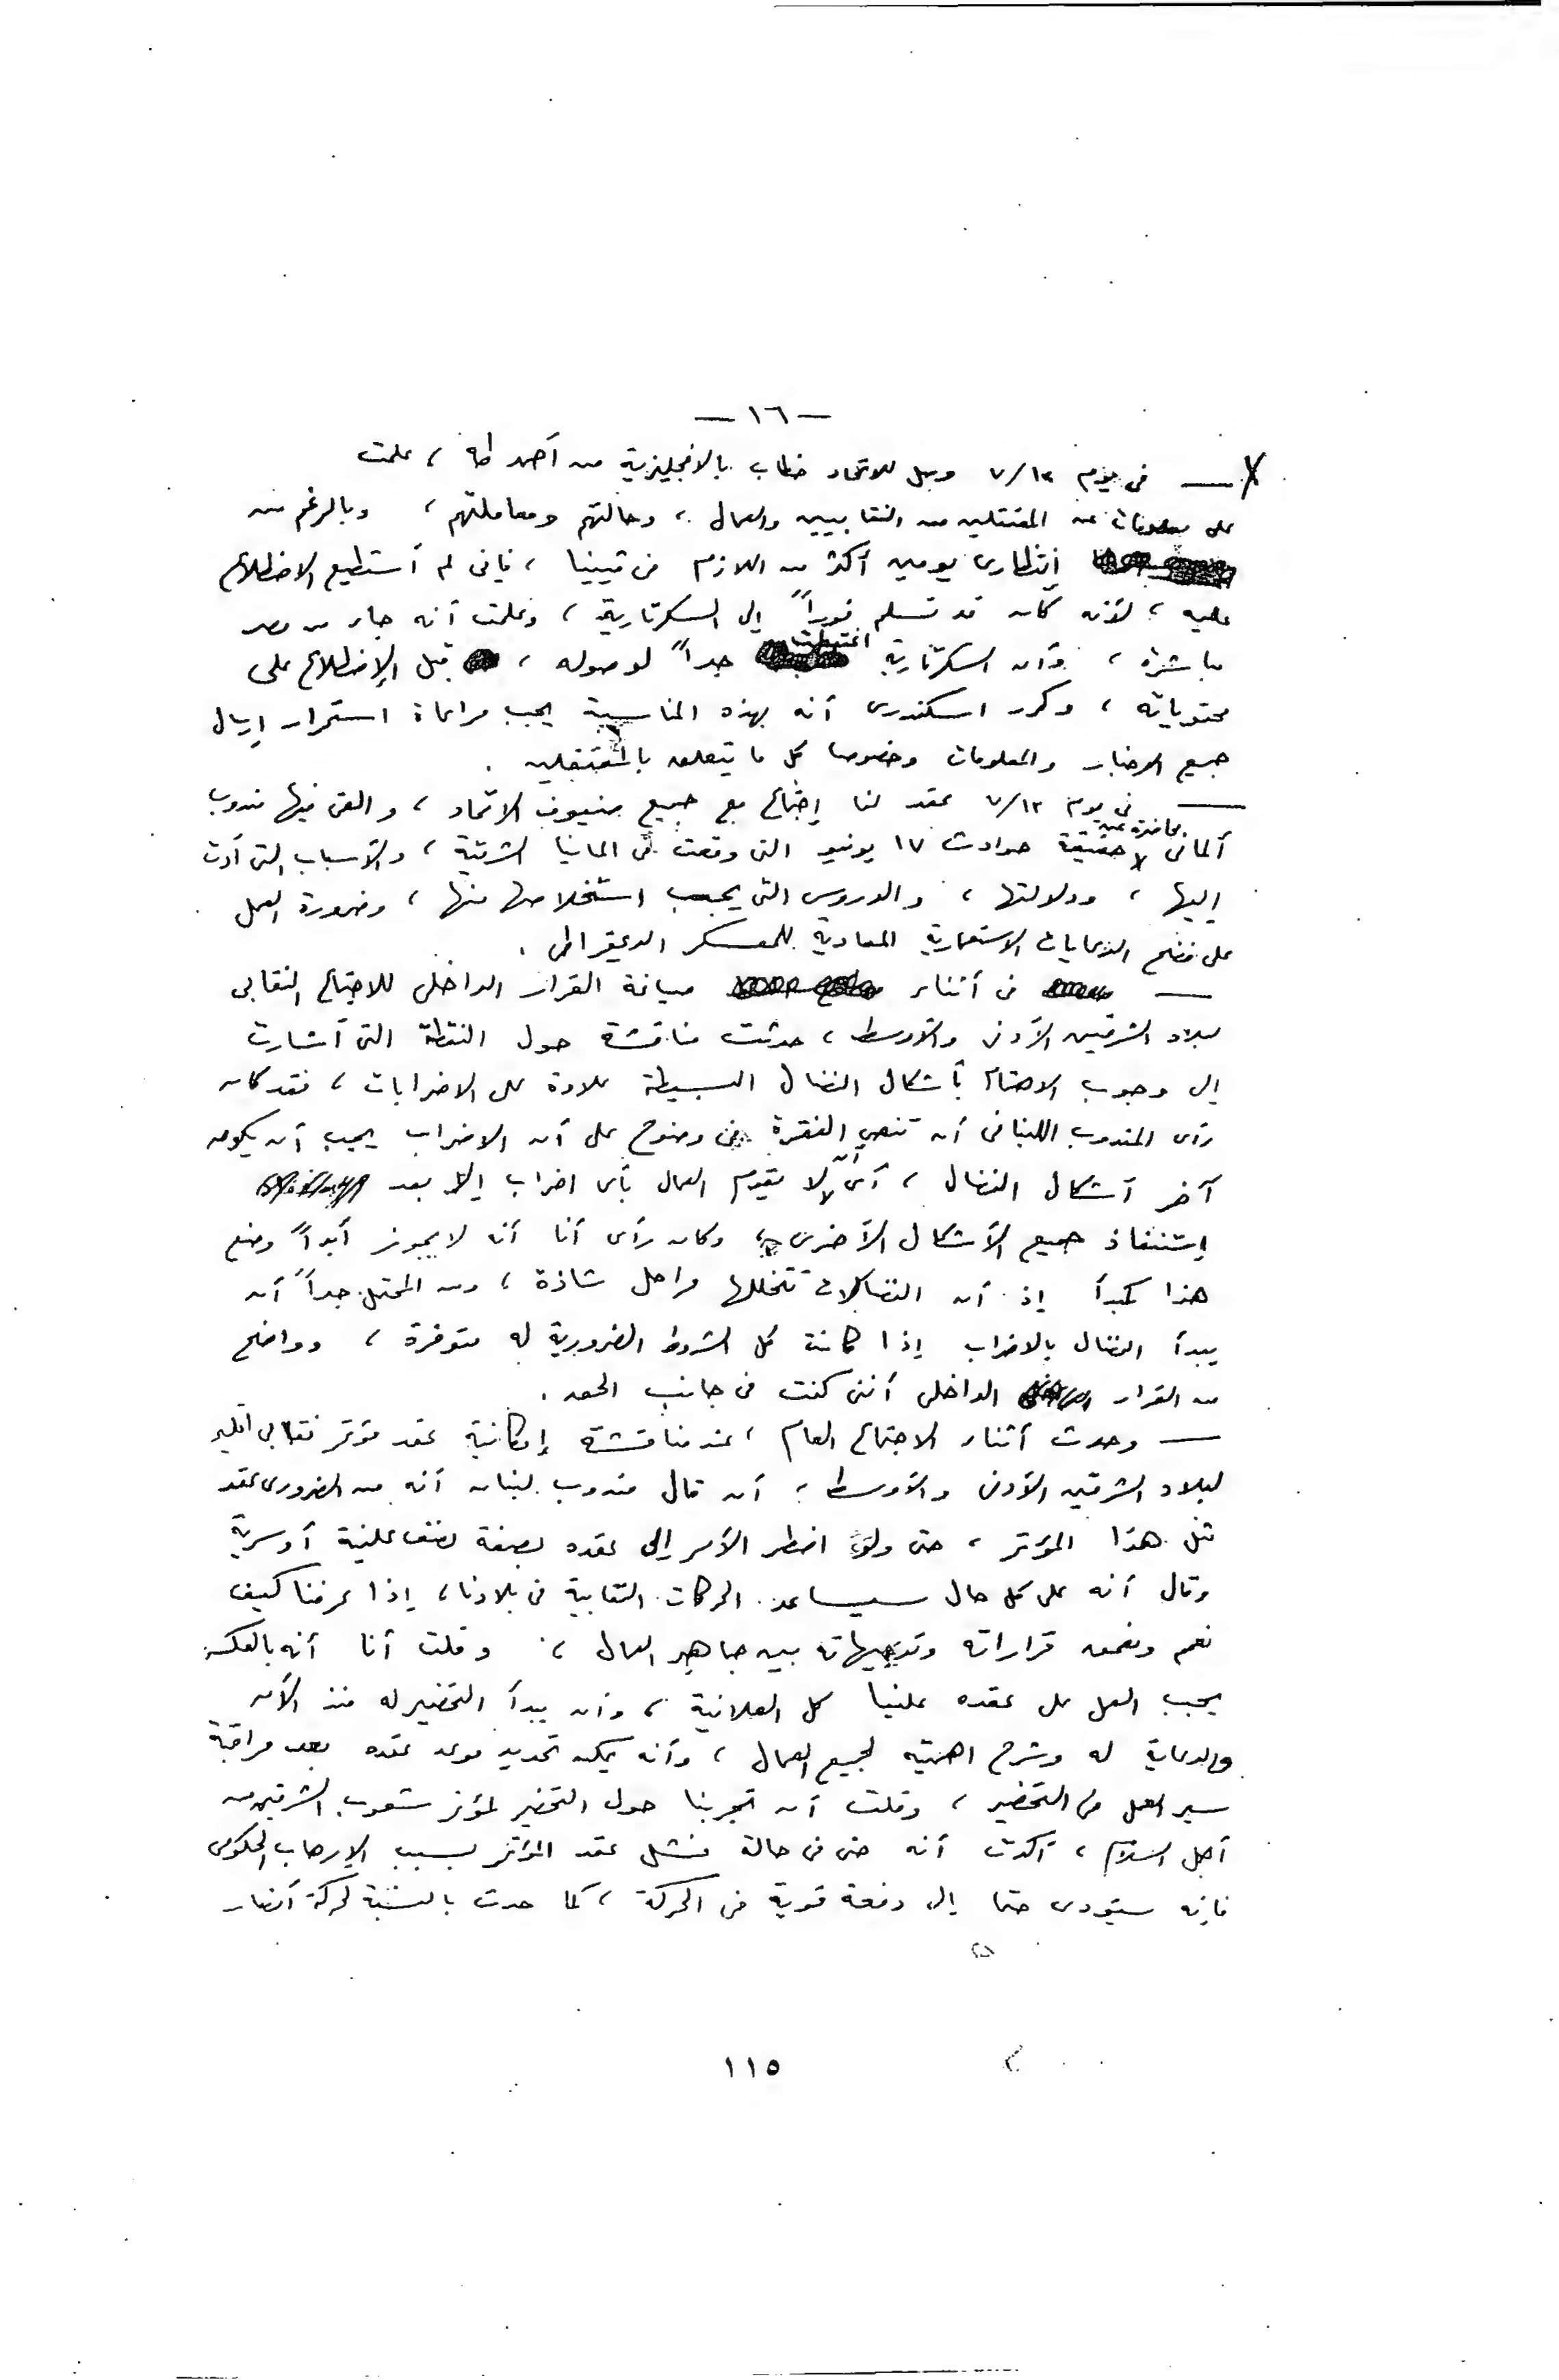 — ١٦ —
— في يوم ٧/١٢ وصل للاتحاد خطاب بالانجليزية من أحمد طه ، علمت
على معلومات عن المعتقلين من النقابيين والعمال ، وحالتهم ومعاملتهم ، وبالرغم من
إنتظارى يومين أكثر من اللازم فى ڤيينا ، فإنى لم أستطيع الاضطلاع
عليه ، لأنه كان قد تسلم فوراً إلى السكرتارية ، وعلمت أنه جاء من مصر
مباشرة ، وأن السكرتارية اغتبطت جداً لوصوله ، قبل الإضطلاع على
محتوياته ، وكرر اسكندرى أنه بهذه المناسبة يجب مراعاة استمرار إرسال
جميع الاخبار والمعلومات وخصوصا كل ما يتعلق بالمعتقلين .
— فى يوم ٧/١٢ عقد لنا إجتماع مع جميع ضيوف الاتحاد ، والقى فيها مندوب
ألمانى محاضرة عن حقيقة حوادث ١٧ يونيو التى وقعت فى المانيا الشرقية ، والأسباب التى أدت
إليها ، ودلالتها ، والدروس التى يجب استخلاصها منها ، وضرورة العمل
على فضح الدعايات الاستعمارية المعادية للمعسكر الديمقراطى .
— فى أثناء صياغة القرار الداخلى للاجتماع النقابى
لبلاد الشرقين الأدنى والأوسط ، حدثت مناقشة حول النقطة التى أشارت
إلى وجوب الاهتمام بأشكال النضال البسيطة علاوة على الاضرابات ، فقد كان
رأى المندوب اللبنانى أن تنص الفقرة فى وضوح على أن الاضراب يجب أن يكون
آخر أشكال النضال ، أى ألا يقوم العمال بأى اضراب إلا بعد
إستنفاذ جميع الأشكال الأخرى ، وكان رأى أنا أنه لا يجوز أبداً وضع
هذا كمبدأ إذ أن النضالات تتخللها مراحل شاذة ، ومن المحتمل جداً أن
يبدأ النضال بالاضراب إذا كانت كل الشروط الضرورية له متوفرة ، وواضح
من القرار الداخلى أننى كنت فى جانب الحق .
— وحدث أثناء الاجتماع العام ، عند مناقشة إمكانية عقد مؤتمر نقابى
لبلاد الشرقين الأدنى والأوسط ، أن قال مندوب لبنان أنه من الضرورى عقد
مثل هذا المؤتمر ، حتى ولو اضطر الأمر إلى عقده بصفة نصف علنية أو سرية
وقال أنه على كل حال سيساعد الحركات النقابية فى بلادنا ، إذا عرفنا كيف
نعمم ونعمق قراراته وتوجيهاته بين جماهير العمال ، وقلت أنا أنه بالعكس
يجب العمل على عقده علنيا كل العلانية ، وأن يبدأ التحضير له منذ الآن
والدعاية له وشرح اهميته لجميع العمال ، وأنه يمكن تحديد موعد عقده بعد مراقبة
سير العمل فى التحضير ، وقلت أن تجربتنا حول التحضير لمؤتمر شعوب الشرقين من
أجل السلام ، أكدت أنه حتى فى حالة فشل عقد المؤتمر بسبب الإرهاب الحكومى
فإنه سيؤدى حتما إلى دفعة قوية فى الحركة ، كما حدث بالنسبة لحركة أنصار
١١٥